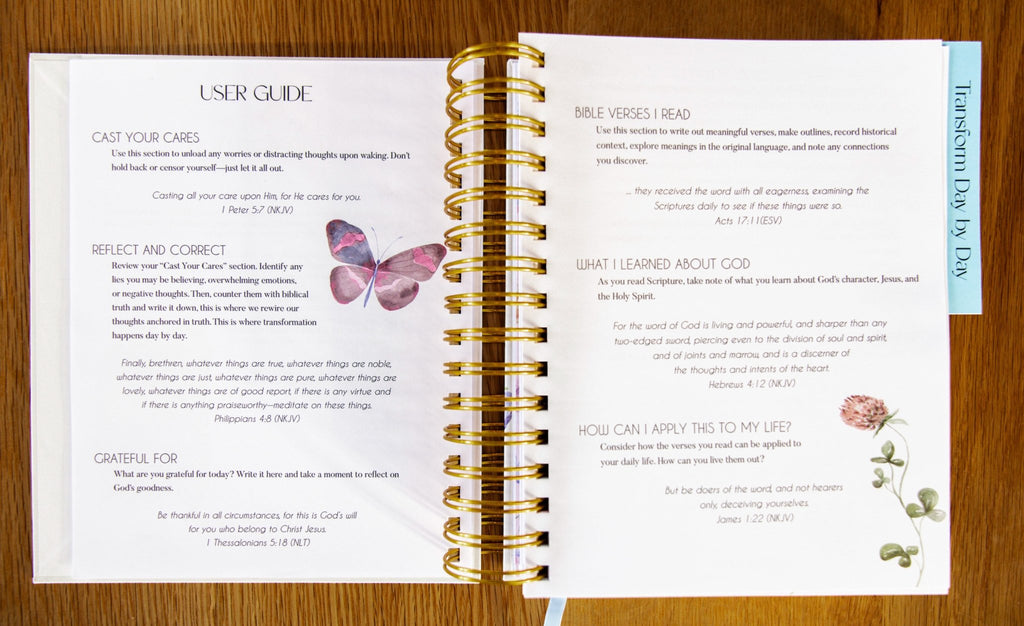 USER GUIDE
CAST YOUR CARES
Use this section to unload any worries or distracting thoughts upon waking. Don't
hold back or censor yourself—just let it all out.
Casting all your care upon Him, for He cares for you.
1 Peter 5:7 (NKJV)
REFLECT AND CORRECT
Review your "Cast Your Cares" section. Identify any
lies you may be believing, overwhelming emotions,
or negative thoughts. Then, counter them with biblical
truth and write it down, this is where we rewire our
thoughts anchored in truth. This is where transformation
happens day by day.
Finally, brethren, whatever things are true, whatever things are noble,
whatever things are just, whatever things are pure, whatever things are
lovely, whatever things are of good report, if there is any virtue and
if there is anything praiseworthy—meditate on these things.
Philippians 4:8 (NKJV)
GRATEFUL FOR
What are you grateful for today? Write it here and take a moment to reflect on
God's goodness.
Be thankful in all circumstances, for this is God's will
for you who belong to Christ Jesus.
1 Thessalonians 5:18 (NLT)
BIBLE VERSES I READ
Use this section to write out meaningful verses, make outlines, record historical
context, explore meanings in the original language, and note any connections
you discover.
... they received the word with all eagerness, examining the
Scriptures daily to see if these things were so.
Acts 17:11(ESV)
WHAT I LEARNED ABOUT GOD
As you read Scripture, take note of what you learn about God's character, Jesus, and
the Holy Spirit.
For the word of God is living and powerful, and sharper than any
two-edged sword, piercing even to the division of soul and spirit,
and of joints and marrow, and is a discerner of
the thoughts and intents of the heart.
Hebrews 4:12 (NKJV)
HOW CAN I APPLY THIS TO MY LIFE?
Consider how the verses you read can be applied to
your daily life. How can you live them out?
But be doers of the word, and not hearers
only, deceiving yourselves.
James 1:22 (NKJV)
Transform Day by Day